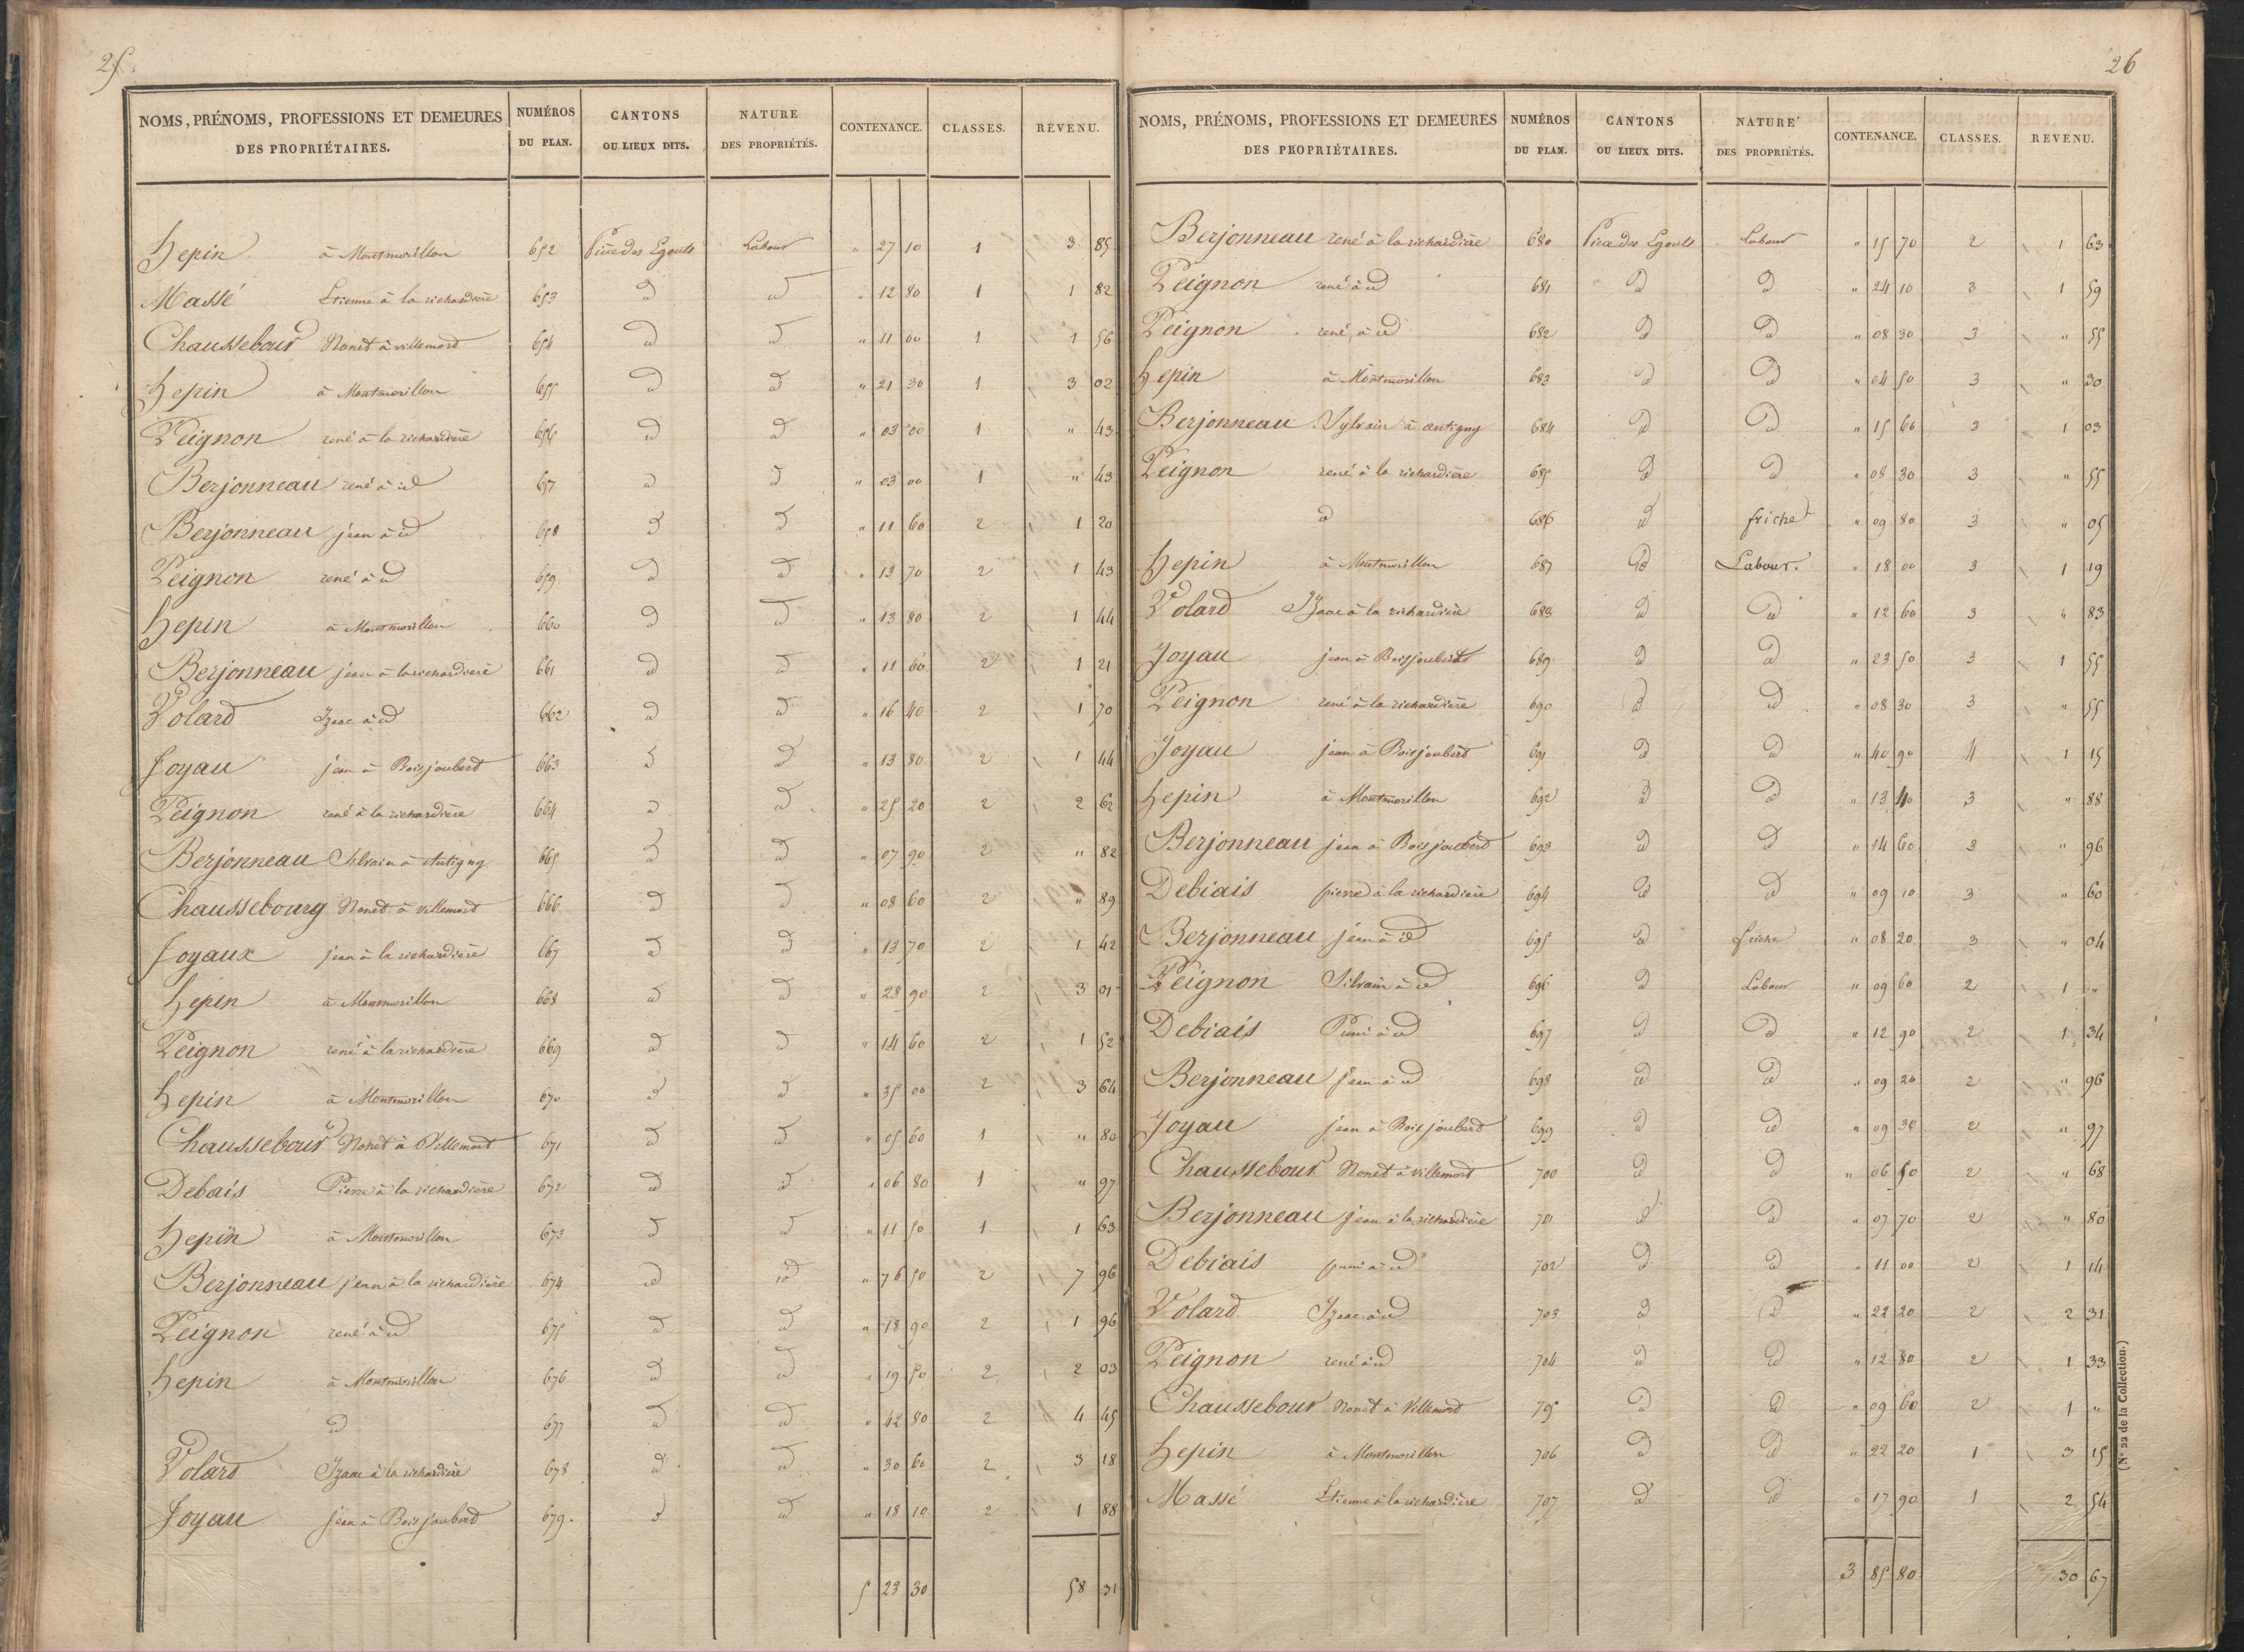 25
NOMS, PRÉNOMS, PROFESSIONS ET DEMEURES DES PROPRIÉTAIRES. NUMÉROS DU PLAN. CANTONS OU LIEUX DITS. NATURE DES PROPRIÉTÉS. CONTENANCE. CLASSES. REVENU.
hepin à Montmorillon 652 Piece des Egouts Labour " 27 10 1 3 85
Massé Etienne à la richardiere 653 id id " 12 80 1 1 82
Chaussebour Nonet à villemord 654 id id " 11 00 1 1 56
hepin à Montmorillon 655 id id " 21 30 1 3 02
Peignon rené à la richardiere 656 id id " 03 00 1 " 43
Berjonneau rené à id 657 id id " 03 00 1 " 43
Berjonneau jean à id 658 id id " 11 60 2 1 20
Peignon rené à id 659 id id " 13 70 2 1 43
hepin à Montmorillon 660 id id " 13 80 2 1 44
Berjonneau jean à la richardiere 661 id id " 11 60 2 1 21
Volard Izaac à id 662 id id " 16 40 2 1 70
Joyau jean à Boisjouberd 663 id id " 13 80 2 1 44
Peignon rené à la richardiere 664 id id " 25 20 2 2 62
Berjonneau Silvain à Antigny 665 id id " 07 90 2 " 82
Chaussebourg Nonet à villemord 666 id id " 08 60 2 " 89
Joyaux jean à la richardiere 667 id id " 13 70 2 1 42
hepin à Montmorillon 668 id id " 28 90 2 3 01
Peignon rené à la richardiere 669 id id " 14 60 2 1 52
hepin à Montmorillon 670 id id " 35 00 2 3 64
Chaussebour Nonet à Villemord 671 id id " 05 60 1 " 80
Debais Pierre à la richardière 672 id id " 06 80 1 " 97
hepin à Montmorillon 673 id id " 11 50 1 1 63
Berjonneau jean à la richardière 674 id id " 76 50 2 7 96
Peignon rené à id 675 id id " 18 90 2 1 96
hepin à Montmorillon 676 id id " 19 50 2 2 03
id 677 id id " 42 80 2 4 45
Volard Izaac à la richardière 678 id id " 30 60 2 3 18
Joyau jean à Boisjouberd 679. id id " 18 10 2 1 88
5 23 30 58 31
26
NOMS, PRÉNOMS, PROFESSIONS ET DEMEURES DES PROPRIÉTAIRES. NUMÉROS DU PLAN. CANTONS OU LIEUX DITS. NATURE DES PROPRIÉTÉS. CONTENANCE. CLASSES. REVENU.
Berjonneau rené à la richardière 680 Piece des Egouts Labour " 15 70 2 1 63
Peignon rené à id 681 id id " 24 10 3 1 59
Peignon rené à id 682 id id " 08 30 3 " 55
hepin à Montmorillon 683 id id " 04 50 3 " 30
Berjonneau Sylvain à antigny 684 id id " 15 60 3 1 03
Peignon rené à la richardière 685 id id " 08 30 3 " 55
id 686 id friche " 09 80 3 " 05
hepin à Montmorillon 687 id Labour. " 18 00 3 1 19
Volard Izaac à la richardière 688 id id " 12 60 3 " 83
Joyau jean à Boisjouberd 689 id id " 23 50 3 1 55
Peignon rené à la richardière 690 id id " 08 30 3 " 55
Joyau jean à Boisjouberd 691 id id " 40 90 4 1 15
hepin à Montmorillon 692 id id " 13 40 3 " 88
Berjonneau jean à Boisjouberd 693 id id " 14 60 3 " 96
Debiais pierre à la richardière 694 id id " 09 10 3 " 60
Berjonneau jean à id 695 id friche " 08 20 3 " 04
Peignon Silvain à id 696 id Labour " 09 60 2 1 "
Debiais Pierre à id 697 id id " 12 90 2 1 34
Berjonneau jean à id 698 id id " 09 20 2 " 96
Joyau jean à Boisjouberd 699 id id " 09 30 2 " 97
Chaussebour Nonet à villemord 700 id id " 06 50 2 " 68
Berjonneau jean à la richardière 701 id id " 07 70 2 " 80
Debiais pierre à id 702 id id " 11 00 2 1 14
Volard Izaac à id 703 id id " 22 20 2 2 31
Peignon rené à id 704 id id " 12 80 2 1 33
Chaussebour Nonet à Villemord 705 id id " 09 60 2 1 "
hepin à Montmorillon 706 id id " 22 20 1 3 15
Massé Etienne à la richardière 707 id id " 17 90 1 2 54
3 85 80 30 67
(N° 22 de la Collection.)